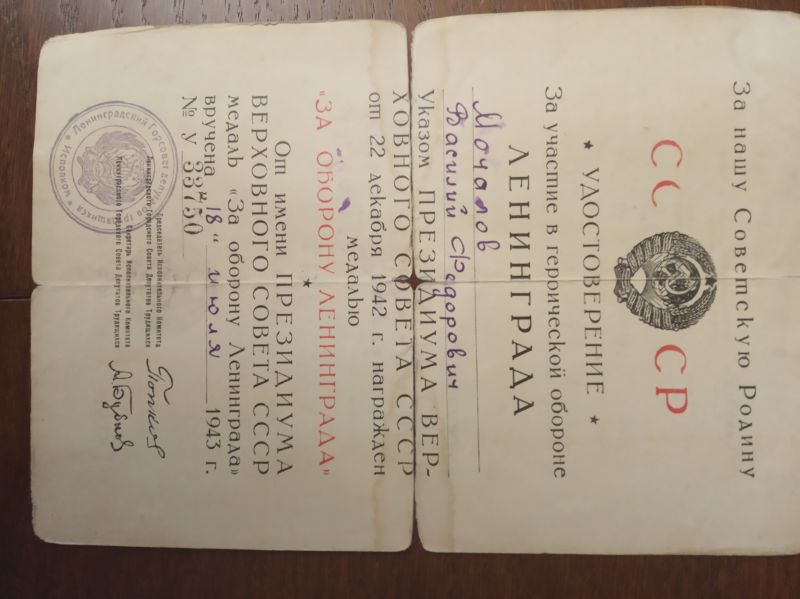 За нашу Советскую Родину
СС СР
★ УДОСТОВЕРЕНИЕ ★
За участие в героической обороне
ЛЕНИНГРАДА
Мочалов
Василий Федорович
Указом ПРЕЗИДИУМА ВЕР-
ХОВНОГО СОВЕТА СССР
от 22 декабря 1942 г. награжден
медалью
«ЗА ОБОРОНУ ЛЕНИНГРАДА»
★
От имени ПРЕЗИДИУМА
ВЕРХОВНОГО СОВЕТА СССР
медаль «За оборону Ленинграда»
вручена „18“ июля 1943 г.
№ У 33750
Председатель Исполнительного Комитета
Ленинградского Городского Совета Депутатов Трудящихся
Попков
Секретарь Исполнительного Комитета
Ленинградского Городского Совета Депутатов Трудящихся
А Бубнов
Ленинградский Горсовет депутатов трудящихся ★ Исполком ★